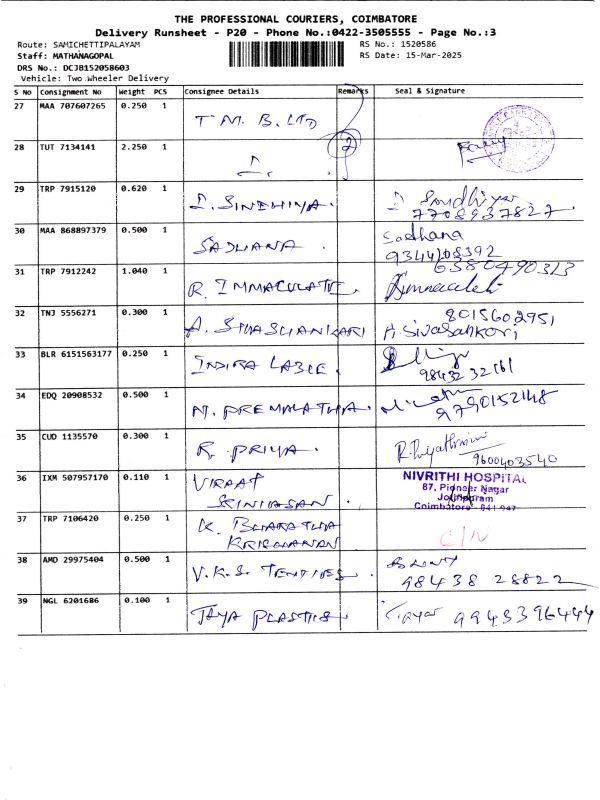 THE PROFESSIONAL COURIERS, COIMBATORE
Delivery Runsheet - P20 - Phone No.:0422-3505555 - Page No.:3
Route: SAMICHETTIPALAYAM RS No.: 1520586
Staff: MATHANAGOPAL RS Date: 15-Mar-2025
DRS No.: DCJB152058603
Vehicle: Two Wheeler Delivery
S No Consignment No Weight PCS Consignee Details Remarks Seal & Signature
27 MAA 707607265 0.250 1 T M. B. LTD
2
28 TUT 7134141 2.250 1
29 TRP 7915120 0.620 1 I. SINDHIYA. I Sindhiya
7708937827
30 MAA 868897379 0.500 1 SADHANA. Sadhana
9344108392
31 TRP 7912242 1.040 1 R. IMMACULATE. 6380490313
32 TNJ 5556271 0.300 1 A. SIVASHANKARI 8015602951
A. Sivasankari
33 BLR 6151563177 0.250 1 INDIRA LABLE.
98432 32161
34 EDQ 20908532 0.500 1 M. PREMALATHA.
9790152148
35 CUD 1135570 0.300 1 R. PRIYA.
9600403540
36 IXM 507957170 0.110 1 VIRAAT
SRINIVASAN.
NIVRITHI HOSPITAL
87, Pioneer Nagar
Jothipuram
Coimbatore - 641 047
37 TRP 7106420 0.250 1 K. BHARATHA
KRISHANAN C/N
38 AMD 29975404 0.500 1 V.K.S. TEXTILES.
98438 28822
39 NGL 6201686 0.100 1 JAYA PLASTICS. 9943396444